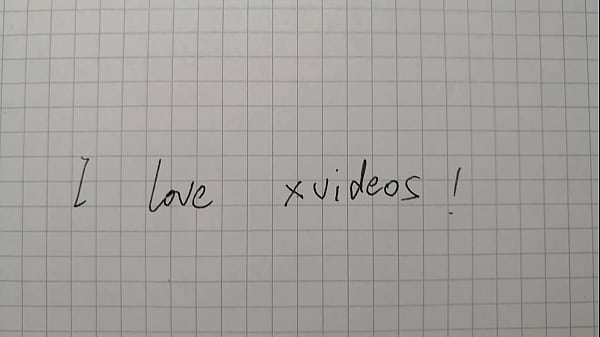 I love xvideos!